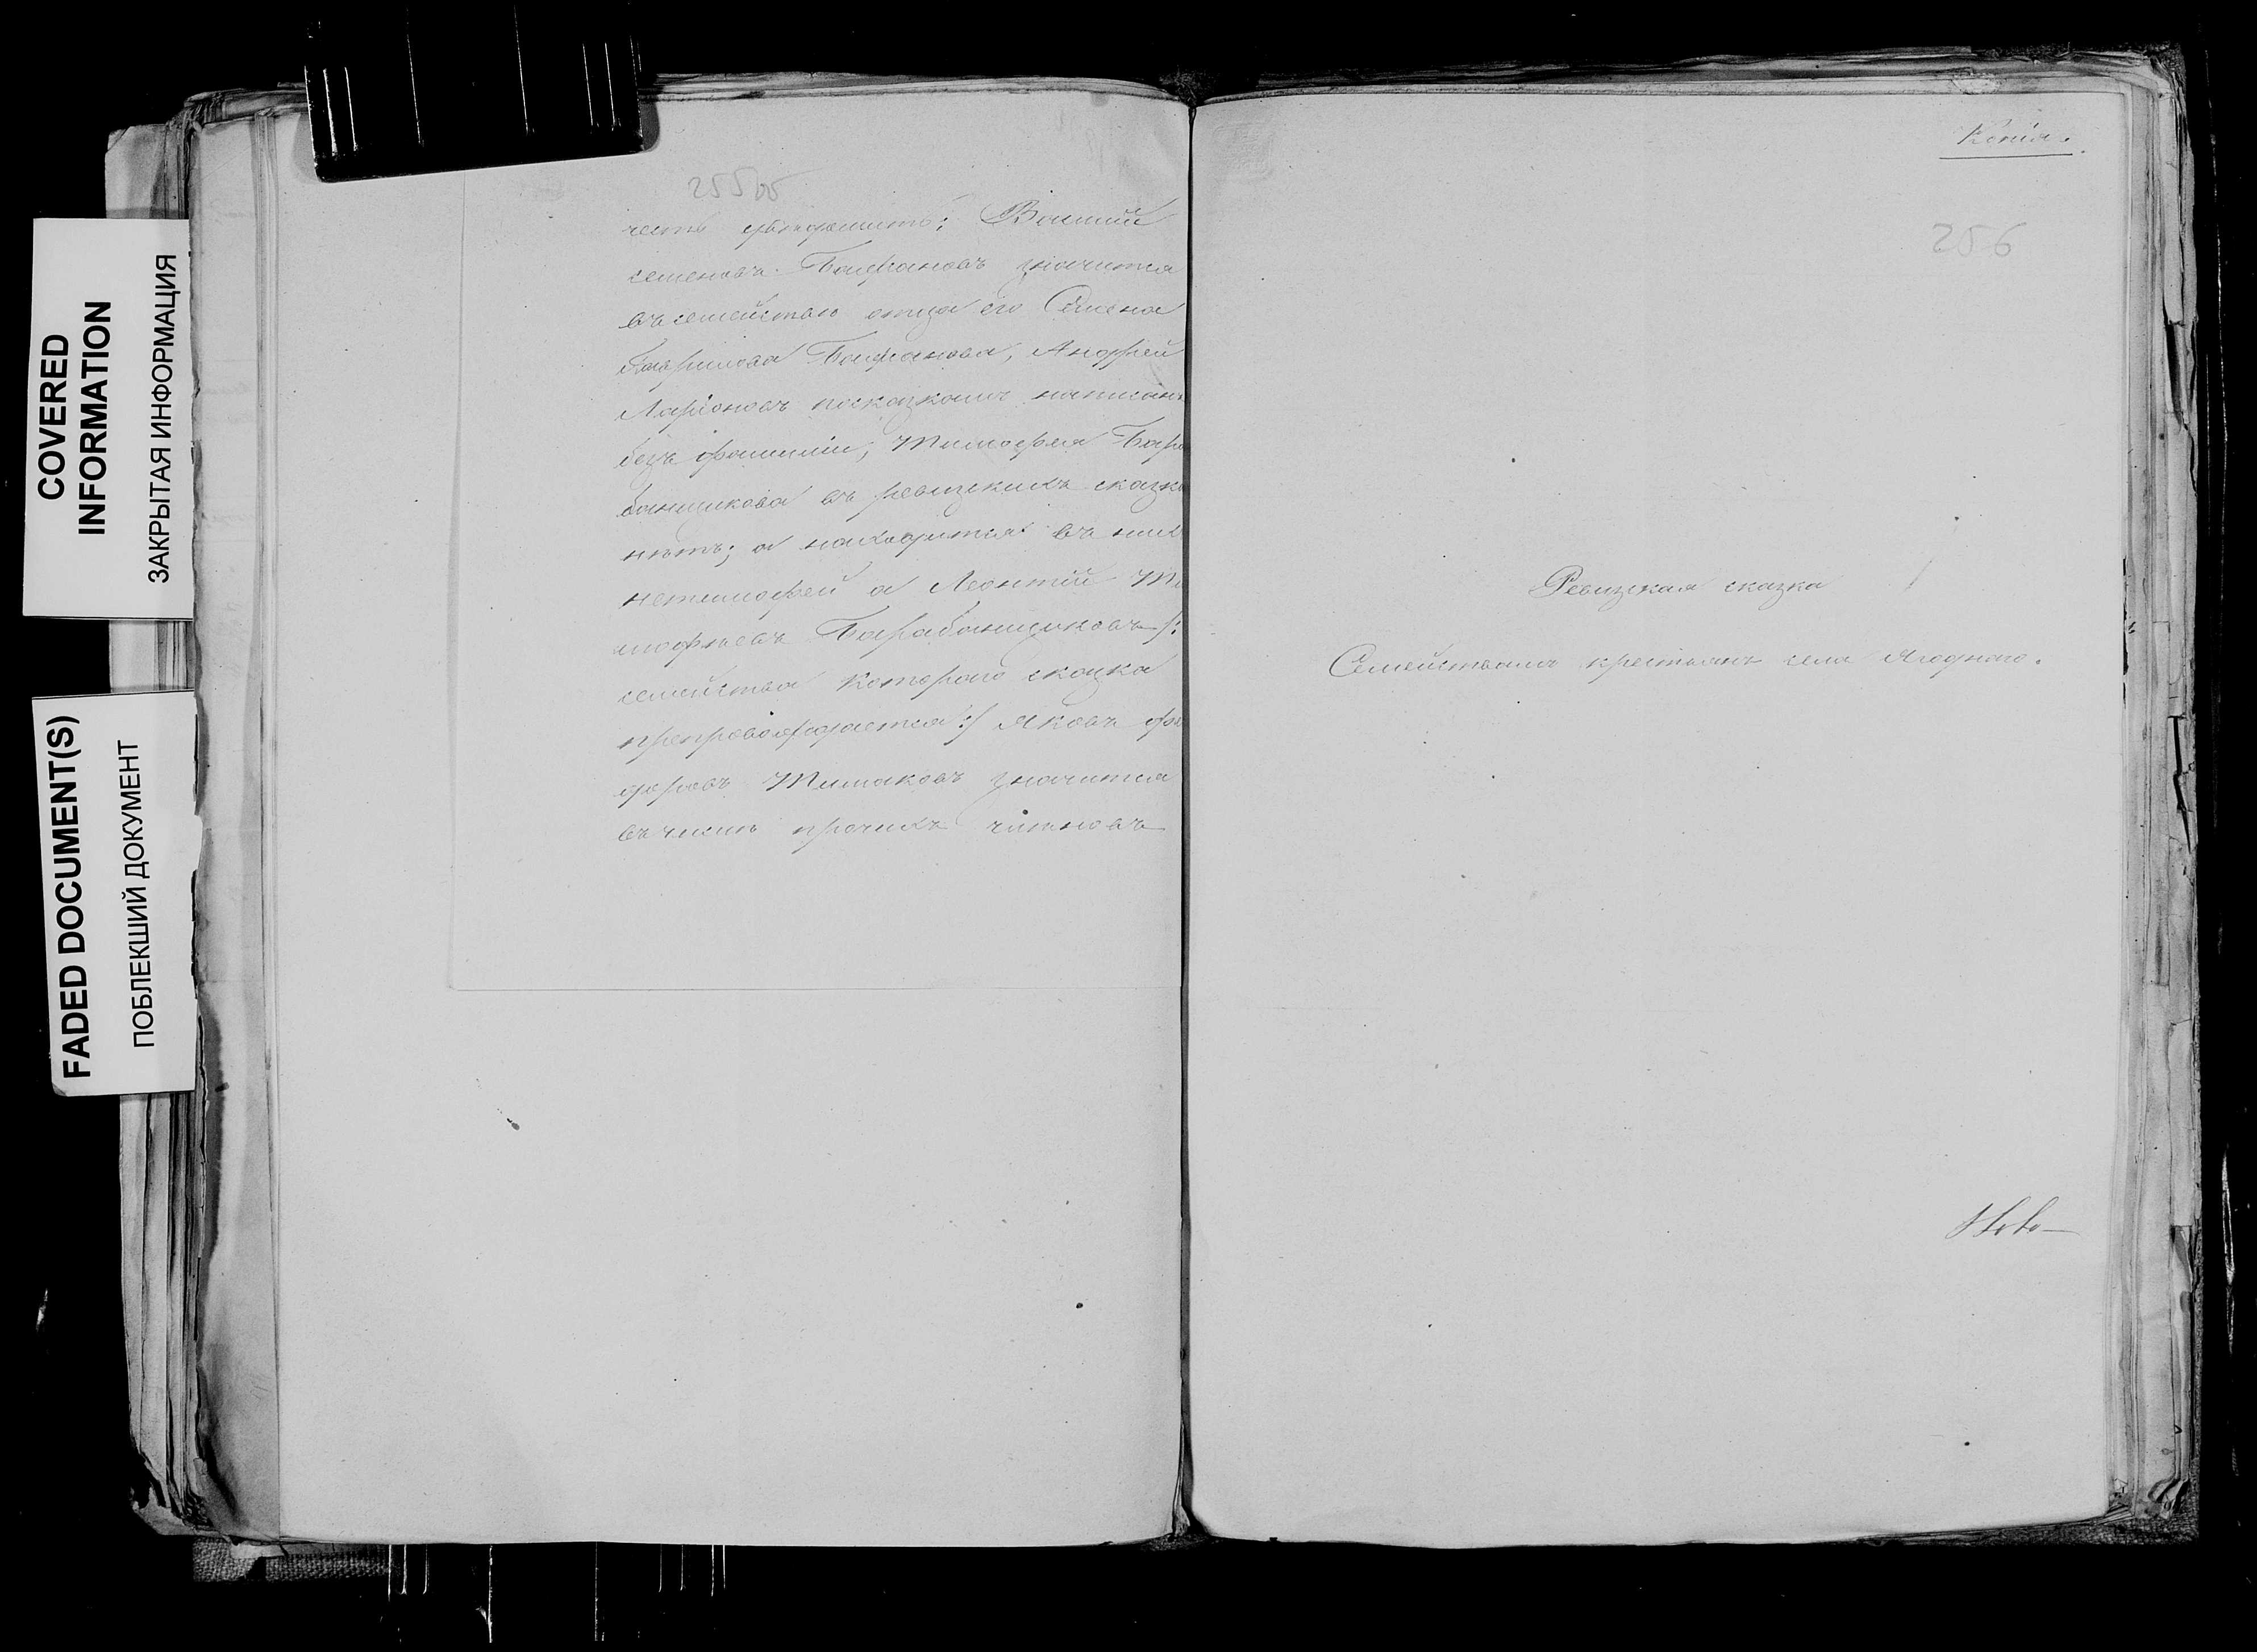 COVERED
INFORMATION
ЗАКРЫТАЯ ИНФОРМАЦИЯ
FADED DOCUMENT(S)
ПОБЛЕКШИЙ ДОКУМЕНТ
255об
честь увѣдомить: Василій
Семеновъ Баифановъ значится
въ семействѣ отца его Семена
Гаврилова Баифанова, Андрей
Ларіоновъ посказкамъ написанъ
безъ фамиліи, Тимофея Бара
банщикова въ ревизскихъ сказка
нѣтъ; а находится въ них
нетимофей а Леонтій Ти
мофѣевъ Барабанщиковъ /:
семейства котораго сказка
препровождается:/ Яковъ Фе
доровъ Тимаковъ значится
въ числѣ прочихъ членовъ
Копія.
256
Ревизская сказка
Семействамъ крестьянъ села Ягоднаго.
Ново-